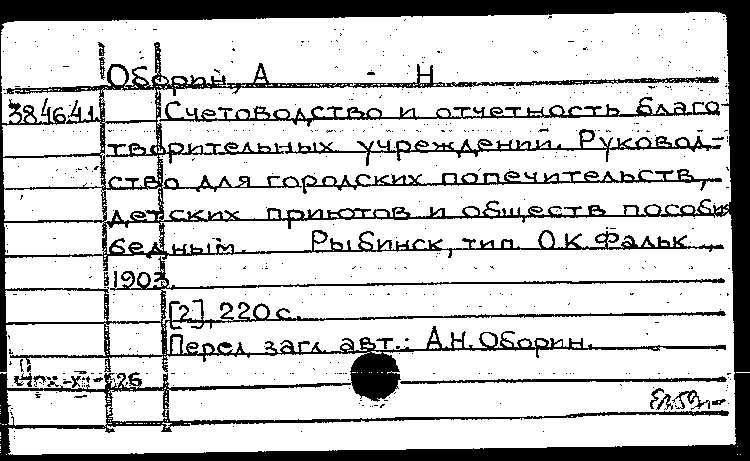 Оборин, А - Н
384641. Счетоводство и отчетность благо-
творительных учреждений. Руковод-
ство для городских попечительств,
детских приютов и обществ пособия
бедным. Рыбинск, тип. О.К. Фальк.,
1903.
[2], 220 с.
Перед загл. авт.: А.Н. Оборин.